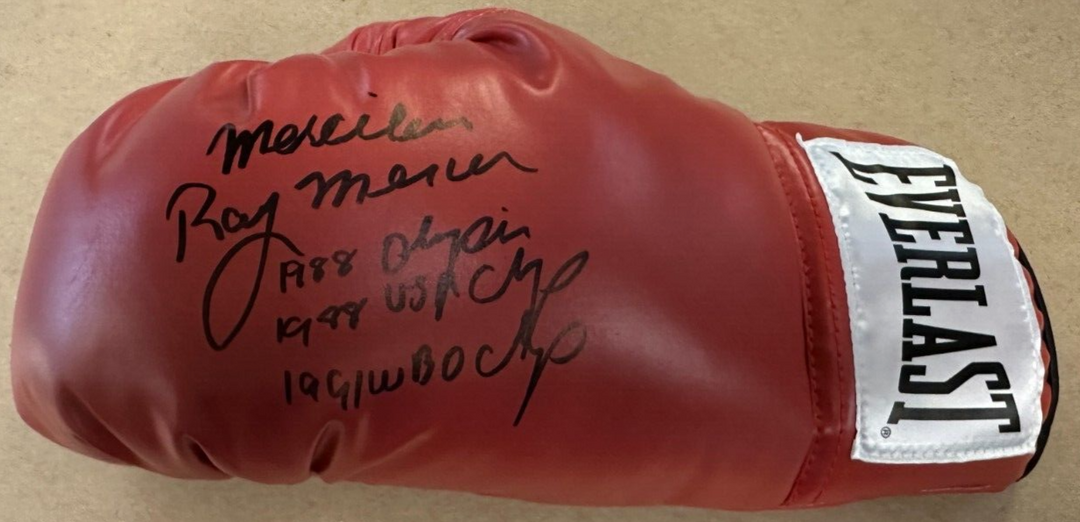 Merciless
Ray Mercer
1988 Olympian
1988 USA Chp
1991 WBO Chp
EVERLAST
®